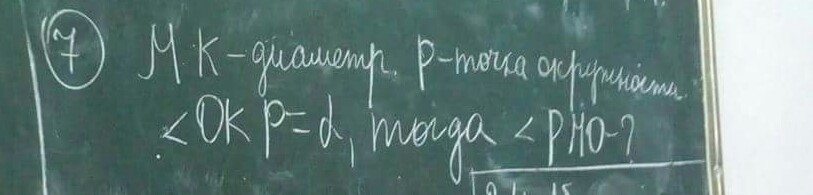 7 МК-диаметр. Р-точка окружности.
<ОКР=α, тогда <РМО-?